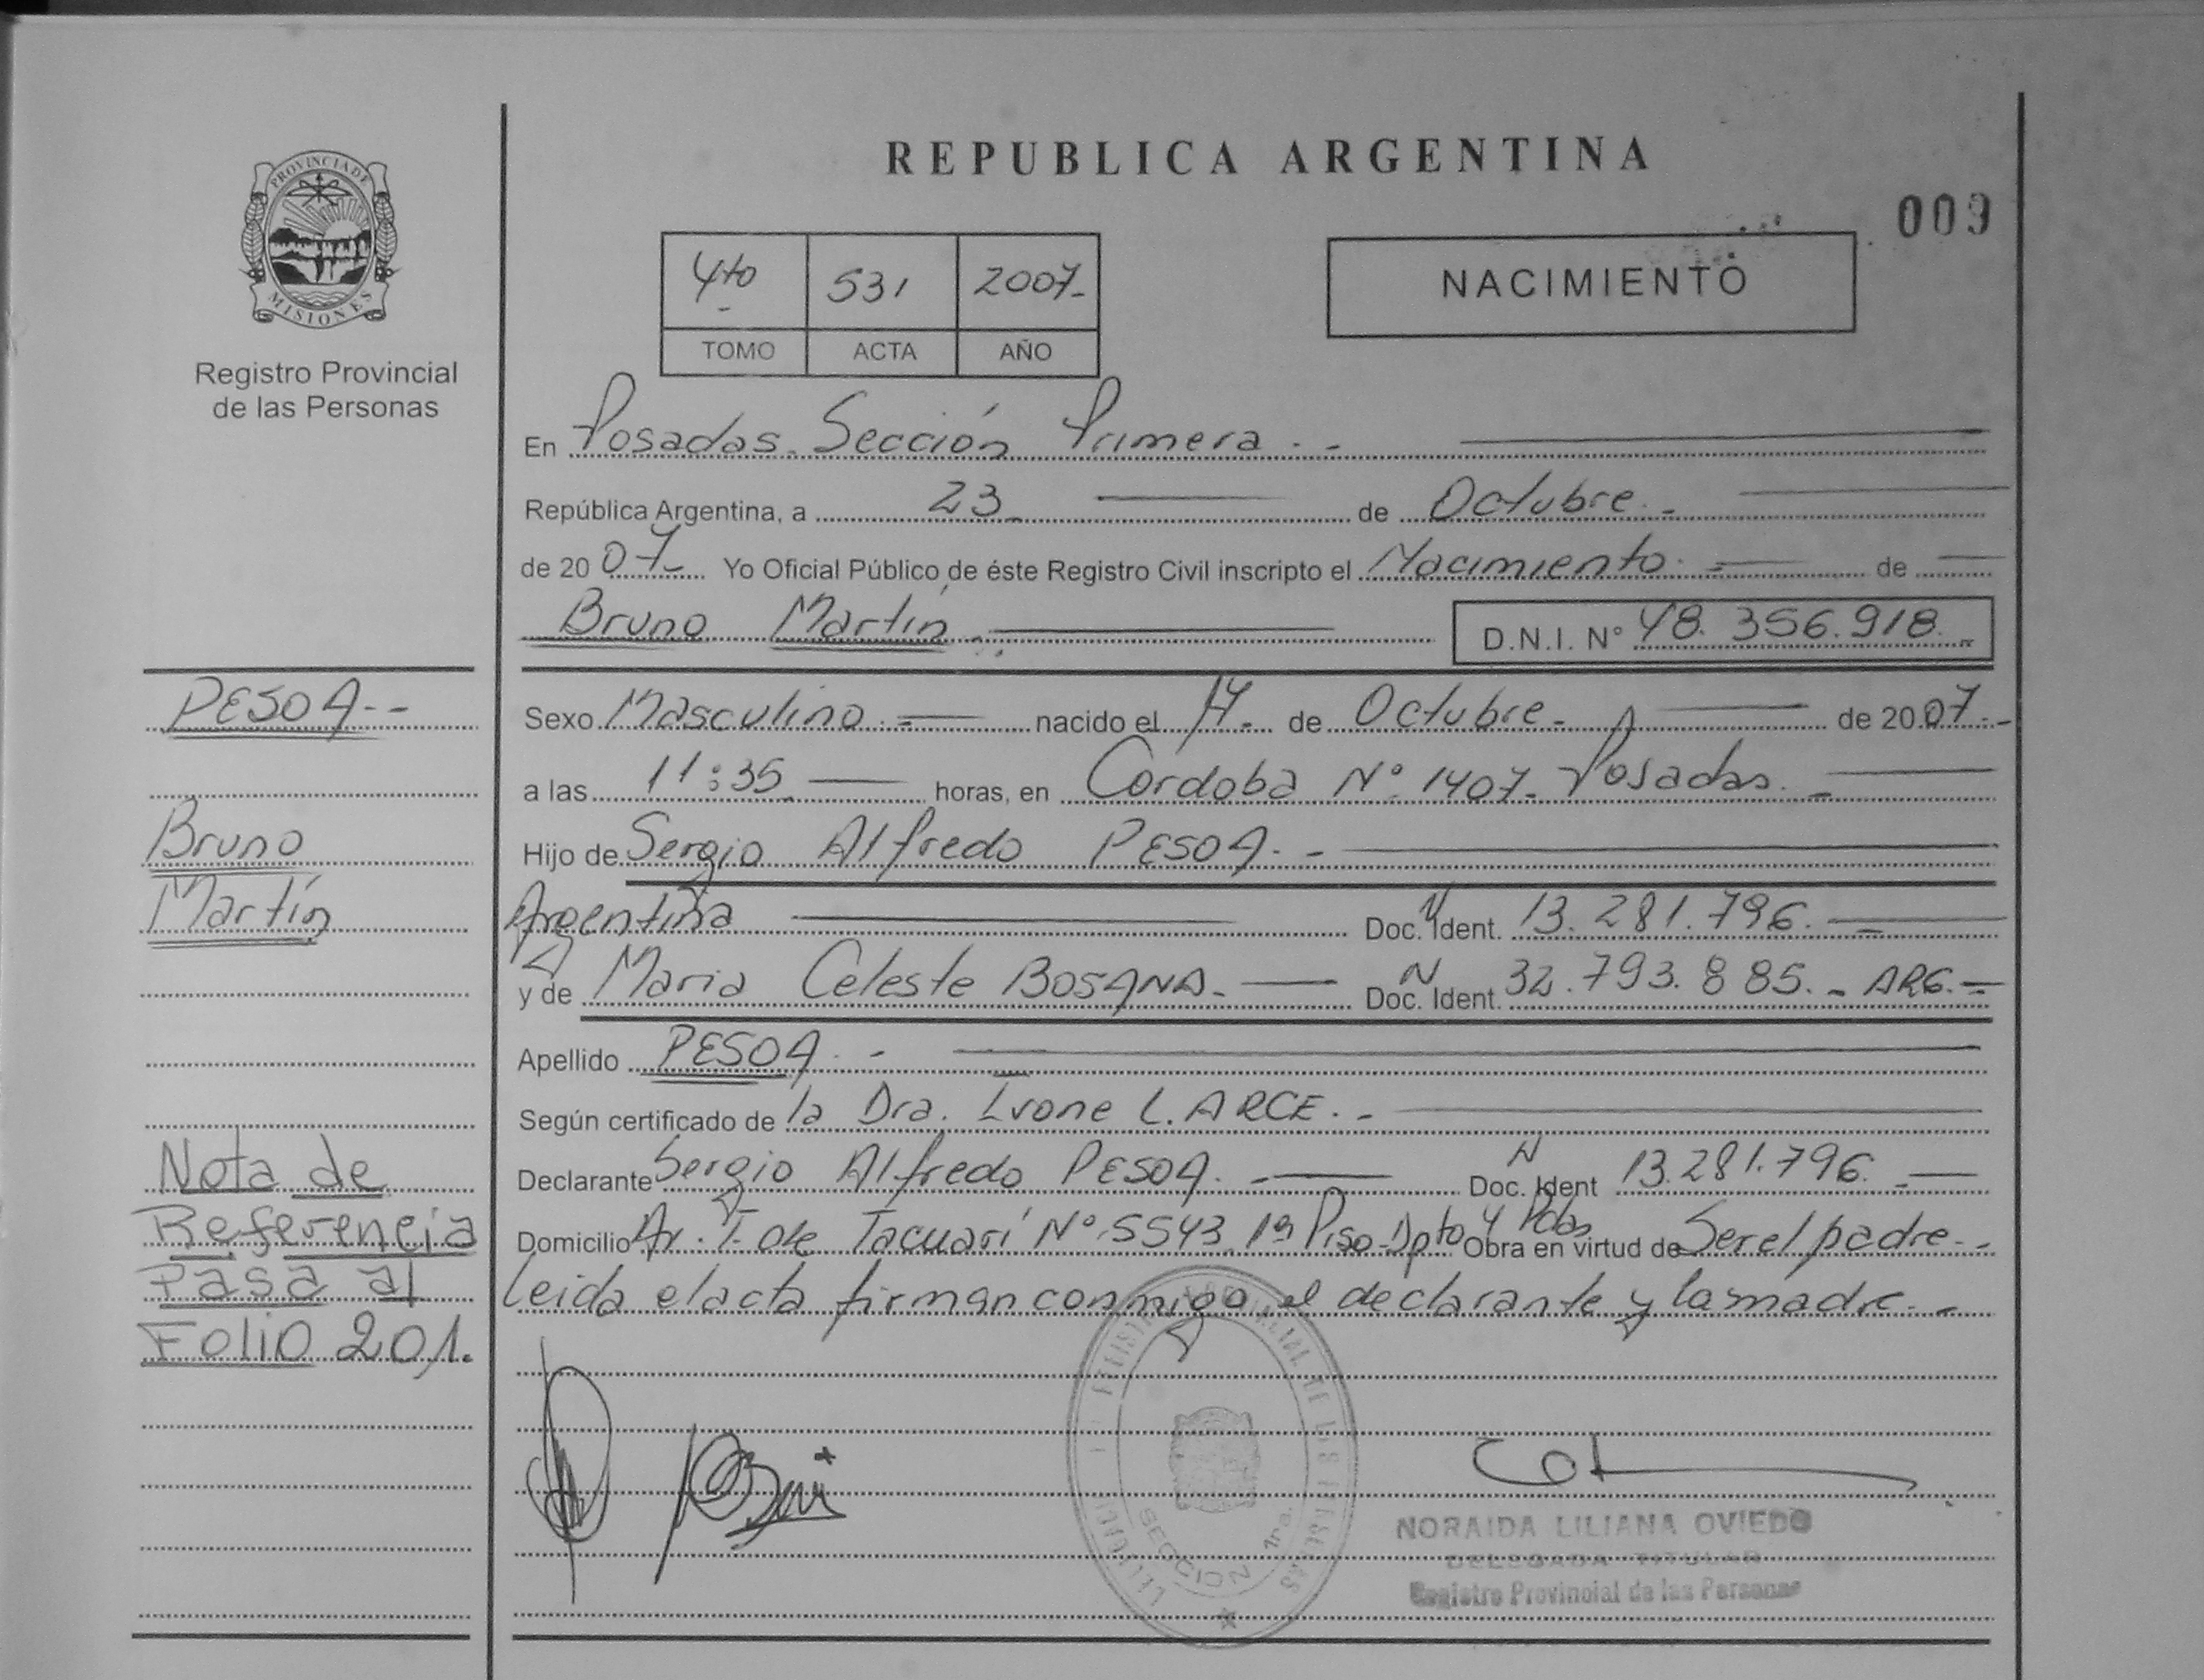 REPUBLICA ARGENTINA
009
PROVINCIA DE
MISIONES
Registro Provincial
de las Personas
4to 531 2007-
TOMO ACTA AÑO
NACIMIENTO
En Posadas. Sección Primera.-
República Argentina, a 23 de Octubre.-
de 2007- Yo Oficial Público de éste Registro Civil inscripto el Nacimiento.- de
Bruno Martín.-
D.N.I. N° 48.356.918.-
PESOA--
Bruno
Martín
Nota de
Referencia
Pasa al
Folio 201.
Sexo Masculino.- nacido el de Octubre.- de 2007.-
a las 11:35 horas, en Córdoba N° 1407- Posadas.-
Hijo de Sergio Alfredo PESOA.-
Argentina Doc. N Ident. 13.281.796.-
y de Maria Celeste Doc. N Ident. 32.793.885.- ARG.-
Apellido PESOA.-
Según certificado de la Dra. Ivone L. ARCE.-
Declarante Sergio Alfredo PESOA.- Doc. N Ident 13.281.796.-
Domicilio Av. T. de Tacuarí N° 5543 1° Piso-Dpto 4 Pdas Obra en virtud de Ser el padre.-
Leida el acta firman conmigo el declarante y la madre.-
SECCION 1ra.
NORAIDA LILIANA OVIEDO
DELEGADA TITULAR
Registro Provincial de las Personas